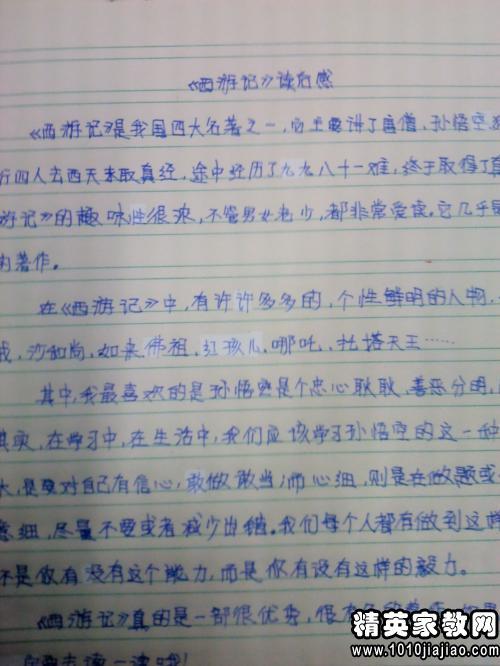 《西游记》读后感
《西游记》是我国四大名著之一,它主要讲了唐僧,孙悟空
行四人去西天来取真经,途中经历了九九八十一难,终于取得了
游记》的趣味性很浓,不管男女老少,都非常爱读。它几乎
的著作。
在《西游记》中,有许许多多的,个性鲜明的人物,
戒,沙和尚,如来佛祖,红孩儿,哪吒,托塔天王……
其中,我最喜欢的是孙悟空是个忠心耿耿、善恶分明,
其实,在学习中,在生活中,我们应该学习孙悟空的这一种
大,是要对自己有信心,敢做敢当;而心细,则是在做题或
意细,尽量不要或者减少出错。我们每个人都有做到这样
不是做有没有这个能力,而是你有没有这样的毅力。
《西游记》真的是一部很优秀,很
你要去读一读哦!
精英家教网
www.1010jiajiao.com